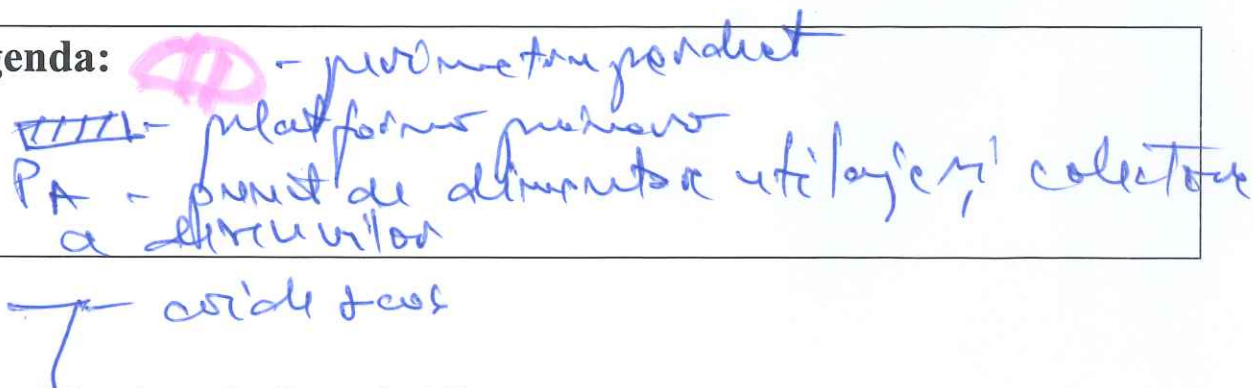 genda: - perimetru parchet
- platforma primara
PA - punct de alimentare utilaje și colectare
a deseurilor
- căi de scos